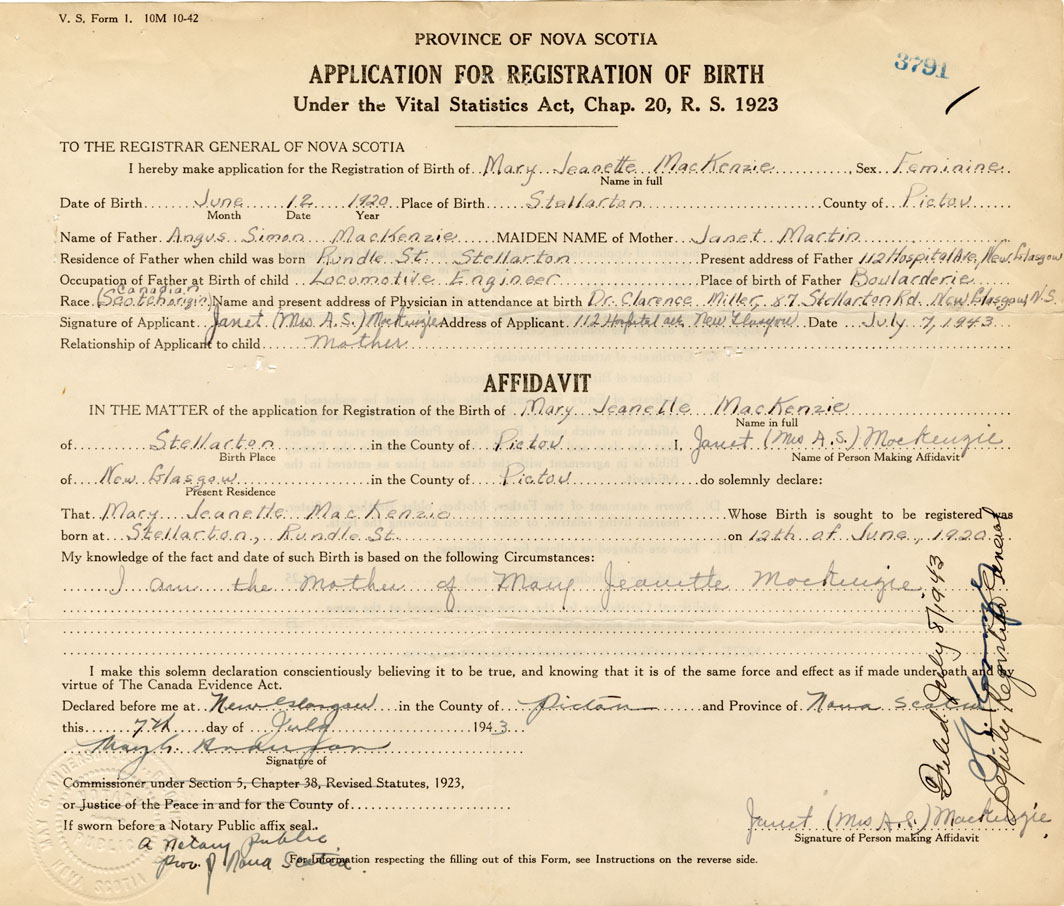 V. S. Form 1. 10M 10-42
PROVINCE OF NOVA SCOTIA
3791
APPLICATION FOR REGISTRATION OF BIRTH
Under the Vital Statistics Act, Chap. 20, R. S. 1923
TO THE REGISTRAR GENERAL OF NOVA SCOTIA
I hereby make application for the Registration of Birth of Mary Jeanette MacKenzie, Sex Feminine
Name in full
Date of Birth June 12 1920 Place of Birth Stellarton County of Pictou
Month Date Year
Name of Father Angus Simon MacKenzie MAIDEN NAME of Mother Janet Martin
Residence of Father when child was born Rundle St. Stellarton Present address of Father 112 Hospital Ave, New Glasgow
Occupation of Father at Birth of child Locomotive Engineer Place of birth of Father Boularderie
Canadian
Race (Scotch origin) Name and present address of Physician in attendance at birth Dr. Clarence Miller 87 Stellarton Rd. New Glasgow N.S.
Signature of Applicant Janet (Mrs A.S.) MacKenzie Address of Applicant 112 Hospital ave New Glasgow Date July 7, 1943
Relationship of Applicant to child Mother
AFFIDAVIT
IN THE MATTER of the application for Registration of the Birth of Mary Jeanette MacKenzie
Name in full
of Stellarton in the County of Pictou I, Janet (Mrs A.S.) MacKenzie
Birth Place Name of Person Making Affidavit
of New Glasgow in the County of Pictou do solemnly declare:
Present Residence
That Mary Jeanette MacKenzie Whose Birth is sought to be registered was
born at Stellarton, Rundle St. on 12th of June, 1920
My knowledge of the fact and date of such Birth is based on the following Circumstances:
I am the Mother of Mary Jeanette Mackenzie
I make this solemn declaration conscientiously believing it to be true, and knowing that it is of the same force and effect as if made under oath and by
virtue of The Canada Evidence Act.
Declared before me at New Glasgow in the County of Pictou and Province of Nova Scotia
this 7th day of July 1943
May G. Anderson
Signature of
Commissioner under Section 5, Chapter 38, Revised Statutes, 1923,
or Justice of the Peace in and for the County of
If sworn before a Notary Public affix seal.
a Notary Public
Prov. of Nova Scotia
Janet (Mrs A.S.) MacKenzie
Signature of Person making Affidavit
For Information respecting the filling out of this Form, see Instructions on the reverse side.
Filed July 8/1943
Deputy Registrar General